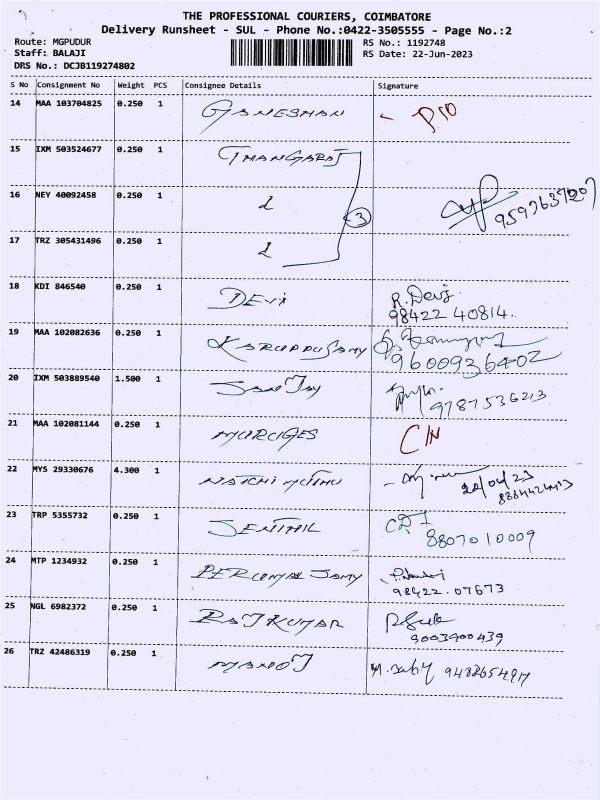 THE PROFESSIONAL COURIERS, COIMBATORE
Delivery Runsheet - SUL - Phone No.:0422-3505555 - Page No.:2
Route: MGPUDUR
Staff: BALAJI
DRS No.: DCJB119274802
RS No.: 1192748
RS Date: 22-Jun-2023
S No Consignment No Weight PCS Consignee Details Signature
14 MAA 103704825 0.250 1 GANESHAN
15 IXM 503524677 0.250 1 THANGARAJ
16 NEY 40092458 0.250 1 3
17 TRZ 305431496 0.250 1
18 KDI 846540 0.250 1 DEVI R. Devi
98422 40814.
19 MAA 102082636 0.250 1 KARUPPUSAMY
9600936402
20 IXM 503889540 1.500 1 SANJAY
9787536213
21 MAA 102081144 0.250 1 MURUGES C/N
22 MYS 29330676 4.300 1 NATCHIMUTHU
23 TRP 5355732 0.250 1 SENTHIL
8807010009
24 MTP 1234932 0.250 1 PERUMAL SAMY
98422.07673
25 NGL 6982372 0.250 1 RAJKUMAR
9003900439
26 TRZ 42486319 0.250 1 MANOJ